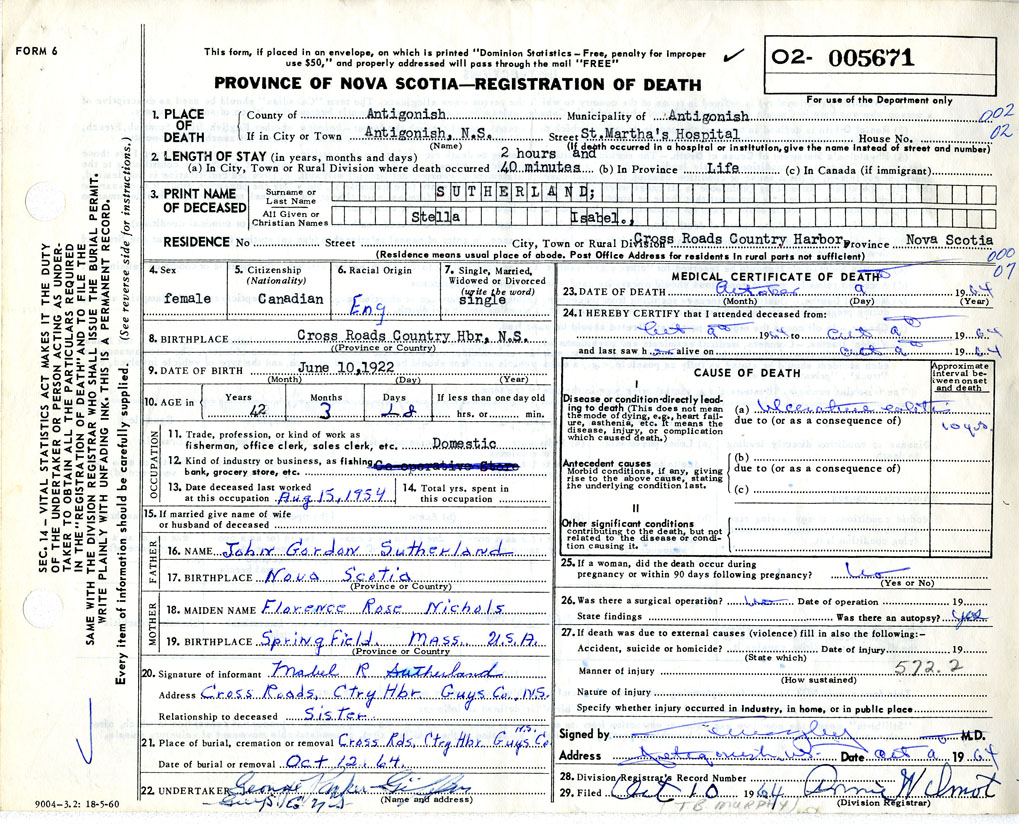 FORM 6
This form, if placed in an envelope, on which is printed "Dominion Statistics – Free, penalty for improper
use $50," and properly addressed will pass through the mail "FREE"
✓
O2- 005671
PROVINCE OF NOVA SCOTIA—REGISTRATION OF DEATH
For use of the Department only
002
02
1. PLACE OF DEATH
County of Antigonish Municipality of Antigonish
If in City or Town Antigonish, N.S. Street St.Martha's Hospital House No.
(Name) (If death occurred in a hospital or institution, give the name instead of street and number)
2. LENGTH OF STAY (in years, months and days) 2 hours and
(a) In City, Town or Rural Division where death occurred 40 minutes (b) In Province Life (c) In Canada (if immigrant)
3. PRINT NAME OF DECEASED
Surname or Last Name SUTHERLAND;
All Given or Christian Names Stella Isabel.,
RESIDENCE No Street City, Town or Rural Division Cross Roads Country Harbor, Province Nova Scotia
(Residence means usual place of abode. Post Office Address for residents in rural parts not sufficient)
000
07
4. Sex
female
5. Citizenship (Nationality)
Canadian
6. Racial Origin
Eng
7. Single, Married, Widowed or Divorced (write the word)
single
8. BIRTHPLACE Cross Roads Country Hbr, N.S.
(Province or Country)
9. DATE OF BIRTH June 10,1922
(Month) (Day) (Year)
10. AGE in
Years 42
Months 3
Days 28
If less than one day old
hrs. or min.
OCCUPATION
11. Trade, profession, or kind of work as
fisherman, office clerk, sales clerk, etc. Domestic
12. Kind of industry or business, as fishing,
bank, grocery store, etc. Co-operative Store
13. Date deceased last worked
at this occupation Aug 15, 1954
14. Total yrs. spent in
this occupation
15. If married give name of wife
or husband of deceased
FATHER
16. NAME John Gordon Sutherland
17. BIRTHPLACE Nova Scotia
(Province or Country)
MOTHER
18. MAIDEN NAME Florence Rose Nichols
19. BIRTHPLACE Springfield Mass. U.S.A.
(Province or Country)
20. Signature of informant Mabel R Sutherland
Address Cross Roads, Ctry Hbr Guys Co., N.S.
Relationship to deceased Sister
21. Place of burial, cremation or removal Cross Rds, Ctry Hbr Guys Co N.S.
Date of burial or removal Oct 12. 64.
22. UNDERTAKER
(Name and address)
9004-3.2: 18-5-60
MEDICAL CERTIFICATE OF DEATH
23. DATE OF DEATH October 9 1964
(Month) (Day) (Year)
24. I HEREBY CERTIFY that I attended deceased from:
Oct 9th 1964 to Oct 9th 1964
and last saw her alive on Oct 9th 1964
CAUSE OF DEATH
Approximate interval between onset and death
I
Disease or condition directly leading to death (This does not mean the mode of dying, e.g., heart failure, asthenia, etc. It means the disease, injury, or complication which caused death.)
(a) Ulcerative colitis
due to (or as a consequence of)
10 yrs.
Antecedent causes
Morbid conditions, if any, giving rise to the above cause, stating the underlying condition last.
(b)
due to (or as a consequence of)
(c)
II
Other significant conditions
contributing to the death, but not related to the disease or condition causing it.
25. If a woman, did the death occur during
pregnancy or within 90 days following pregnancy? No
(Yes or No)
26. Was there a surgical operation? No Date of operation 19
State findings Was there an autopsy? Yes
27. If death was due to external causes (violence) fill in also the following:–
Accident, suicide or homicide? Date of injury 19
(State which)
Manner of injury 572.2
(How sustained)
Nature of injury
Specify whether injury occurred in industry, in home, or in public place
Signed by M.D.
Address Antigonish, N.S. Date Oct 9 1964
28. Division Registrar's Record Number
29. Filed Oct 10 1964 Annie Wilmot
(T B MURPHY)
(Division Registrar)
SEC. 14 – VITAL STATISTICS ACT MAKES IT THE DUTY
OF THE UNDERTAKER OR PERSON ACTING AS UNDER-
TAKER TO OBTAIN ALL THE PARTICULARS REQUIRED
IN THE "REGISTRATION OF DEATH" AND TO FILE THE
SAME WITH THE DIVISION REGISTRAR WHO SHALL ISSUE THE BURIAL PERMIT.
WRITE PLAINLY WITH UNFADING INK. THIS IS A PERMANENT RECORD.
Every item of information should be carefully supplied. (See reverse side for instructions.)